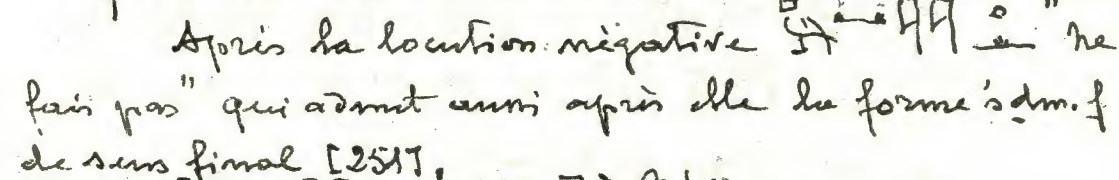 Après la locution négative " ne
fais pas" qui admet aussi après elle la forme śdm.f
de sens final [251].